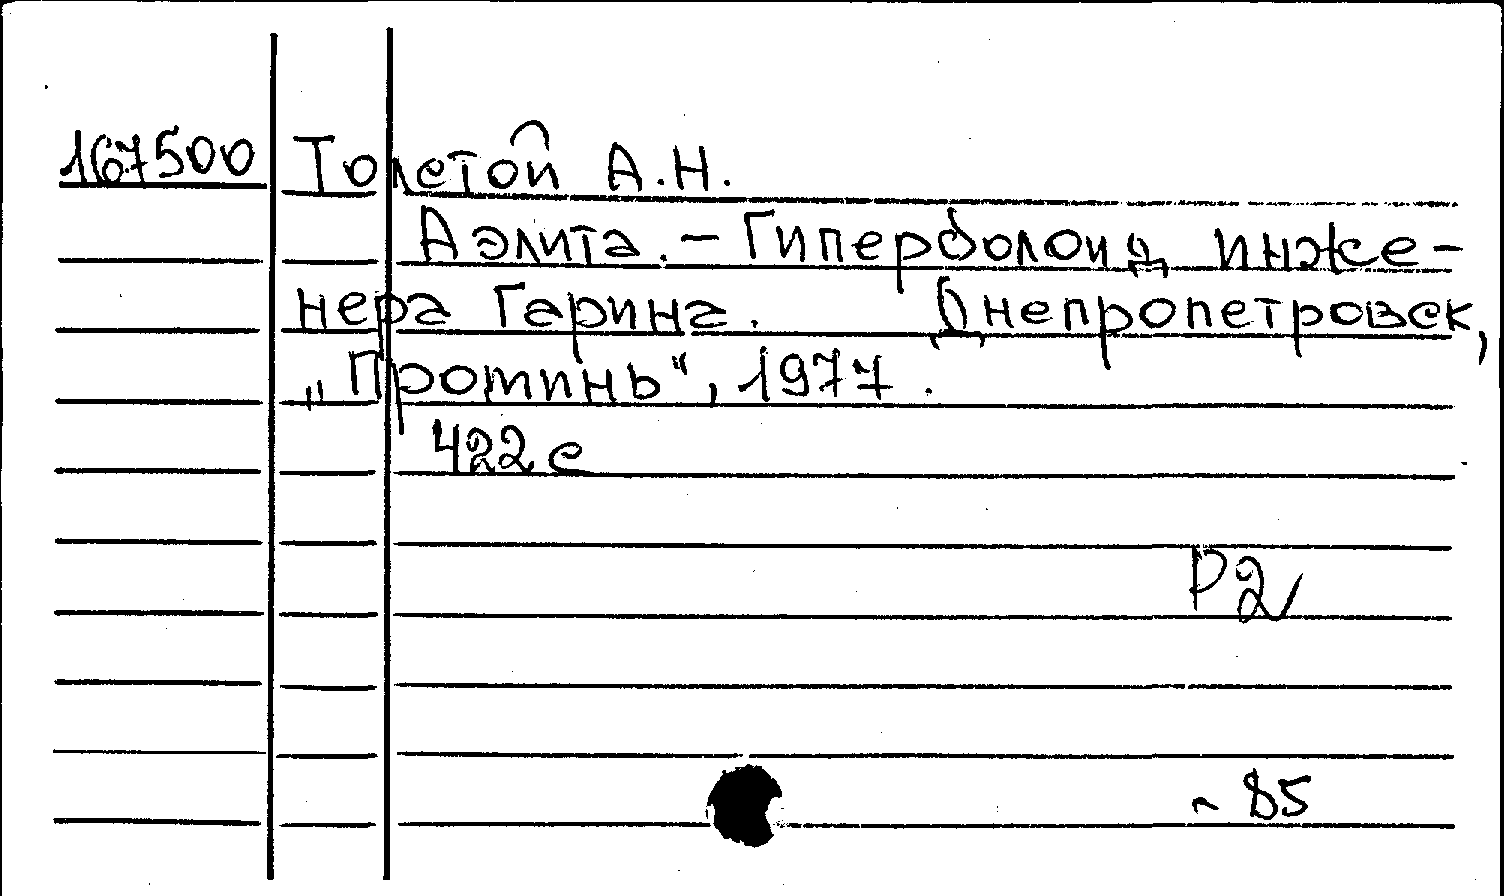 167500 Толстой А.Н.
Аэлита. - Гиперболоид инже-
нера Гарина. Днепропетровск,
„Проминь", 1977.
422 с
Р2
~ 85